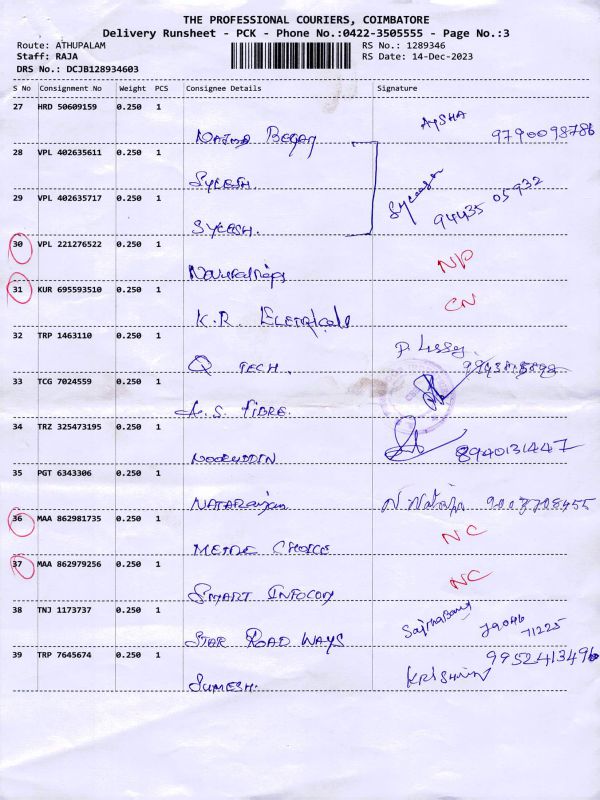 THE PROFESSIONAL COURIERS, COIMBATORE
Delivery Runsheet - PCK - Phone No.:0422-3505555 - Page No.:3
Route: ATHUPALAM RS No.: 1289346
Staff: RAJA RS Date: 14-Dec-2023
DRS No.: DCJB128934603
S No Consignment No Weight PCS Consignee Details Signature
27 HRD 50609159 0.250 1
Begam AySHA 9790098786
28 VPL 402635611 0.250 1
SYLESH.
29 VPL 402635717 0.250 1
SYLESH. 94435 05932
30 VPL 221276522 0.250 1
NP
31 KUR 695593510 0.250 1
K.R. Eletricals CN
32 TRP 1463110 0.250 1
Q TECH. P. Lissy
33 TCG 7024559 0.250 1
S. FIBRE.
34 TRZ 325473195 0.250 1
NOORUDDIN 8940131447
35 PGT 6343306 0.250 1
NATARajan N. Nataja
36 MAA 862981735 0.250 1
CHOICE NC
37 MAA 862979256 0.250 1
SMART INFOCOM NC
38 TNJ 1173737 0.250 1
STAR ROAD WAYS 79046 71225
39 TRP 7645674 0.250 1
SUMESH. 9952413496